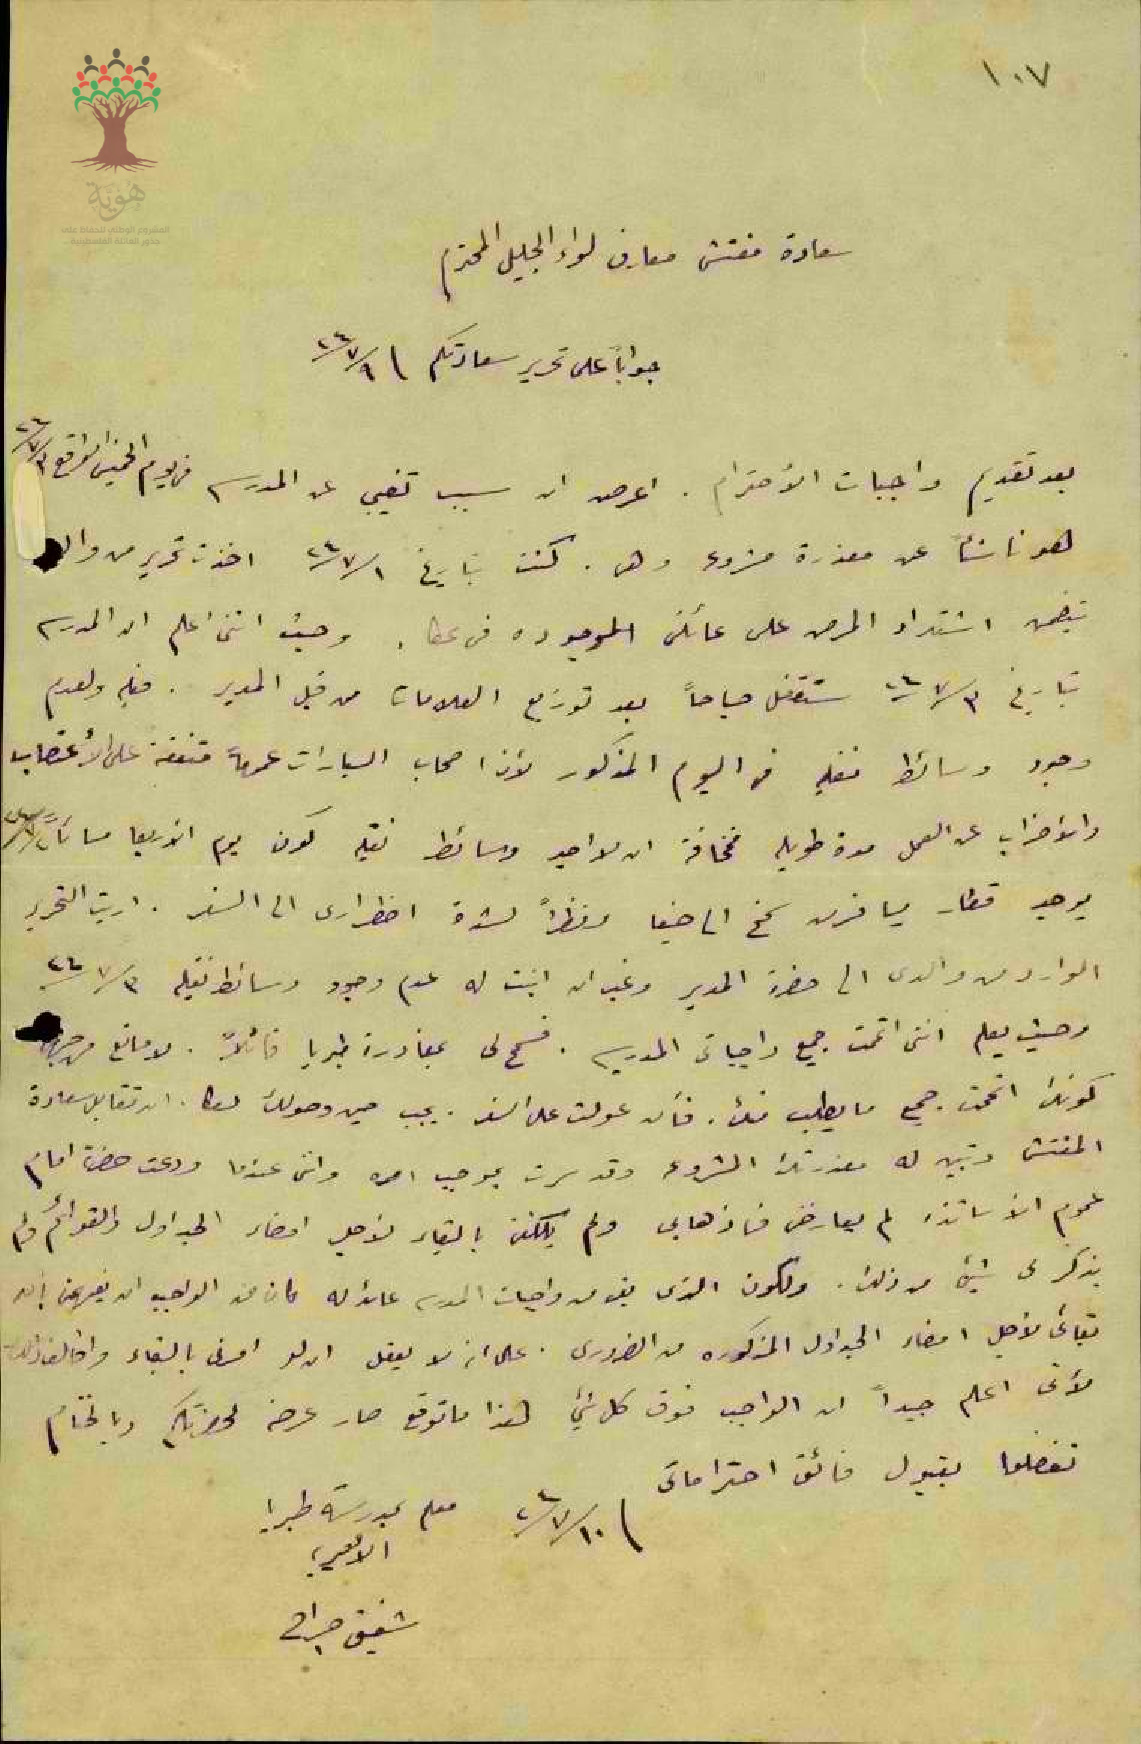 ١٠٧
هوية
المشروع الوطني للحفاظ على
جذور العائلة الفلسطينية
سعادة مفتش معارف لواء الجليل المحترم
جواباً على تحرير سعادتكم ٩/٧/٢٤
بعد تقديم واجبات الأحترام . اعرض ان سبب تغيبي عن المدرسه في يوم الخميس الواقع ٣/٧/٢٤
هو ناشئ عن معذرة مشروعه وهي . كنت بتاريخ ١/٧/٢٤ اخذت تحرير من
يتضمن اشتداد المرض على عائلتي الموجوده في عكا . وحيث انني اعلم ان المدرسه
بتاريخ ٣/٧/٢٤ ستقفل صباحاً بعد توزيع العلامات من قبل المدير . فعليه ولعدم
وجود وسائط نقليه في اليوم المذكور لأن اصحاب السيارات عموماً متفقة على الأعتصاب
والأضراب عن العمل مدة طويله فمخافة ان لا اجد وسائط نقليه كون يوم الأربعا مساءً
يوجد قطار يسافر من سمخ الى حيفا ونظراً لشدة اضطراري الى السفر . اريت التحرير
الوارد من والدي الى حضرة المدير وغب ان اثبت له عدم وجود وسائط نقليه ٣/٧/٢٤
وحيث يعلم انني اتممت جميع واجباتي المدرسيه . فسمح لي بمغادرة طبريا قائلاً . لا مانع من
كونك اتممت جميع ما يطلب منك . فأن عولت على السفر . يجب حين وصولك لعكا . ان تقابل سعادة
المفتش وتبين له معذرتك المشروعه وقد سرت بموجب امره وانني عندما ودعت حضرته امام
عموم الأساتذه لم يعارض في ذهابي ولم يكلفني بالبقاء لأجل امضاء الجداول والقوائم ولم
يذكر لي شيئ من ذلك . ولكون الذي بقي من واجبات المدرسه عائد له كان من الواجب ان يفهمني بأن
بقائي لأجل امضاء الجداول المذكوره من الضروري . على انه لا يعقل ان لو امرني بالبقاء واخالف ذلك
لأنني اعلم جيداً ان الواجب فوق كل شيئ هذا ما توقع صار عرضه لحضرتكم وبالختام
تفضلوا بقبول فائق احتراماتي
١٠/٧/٢٤ معلم بمدرسة طبريا
الأميريه
شفيق